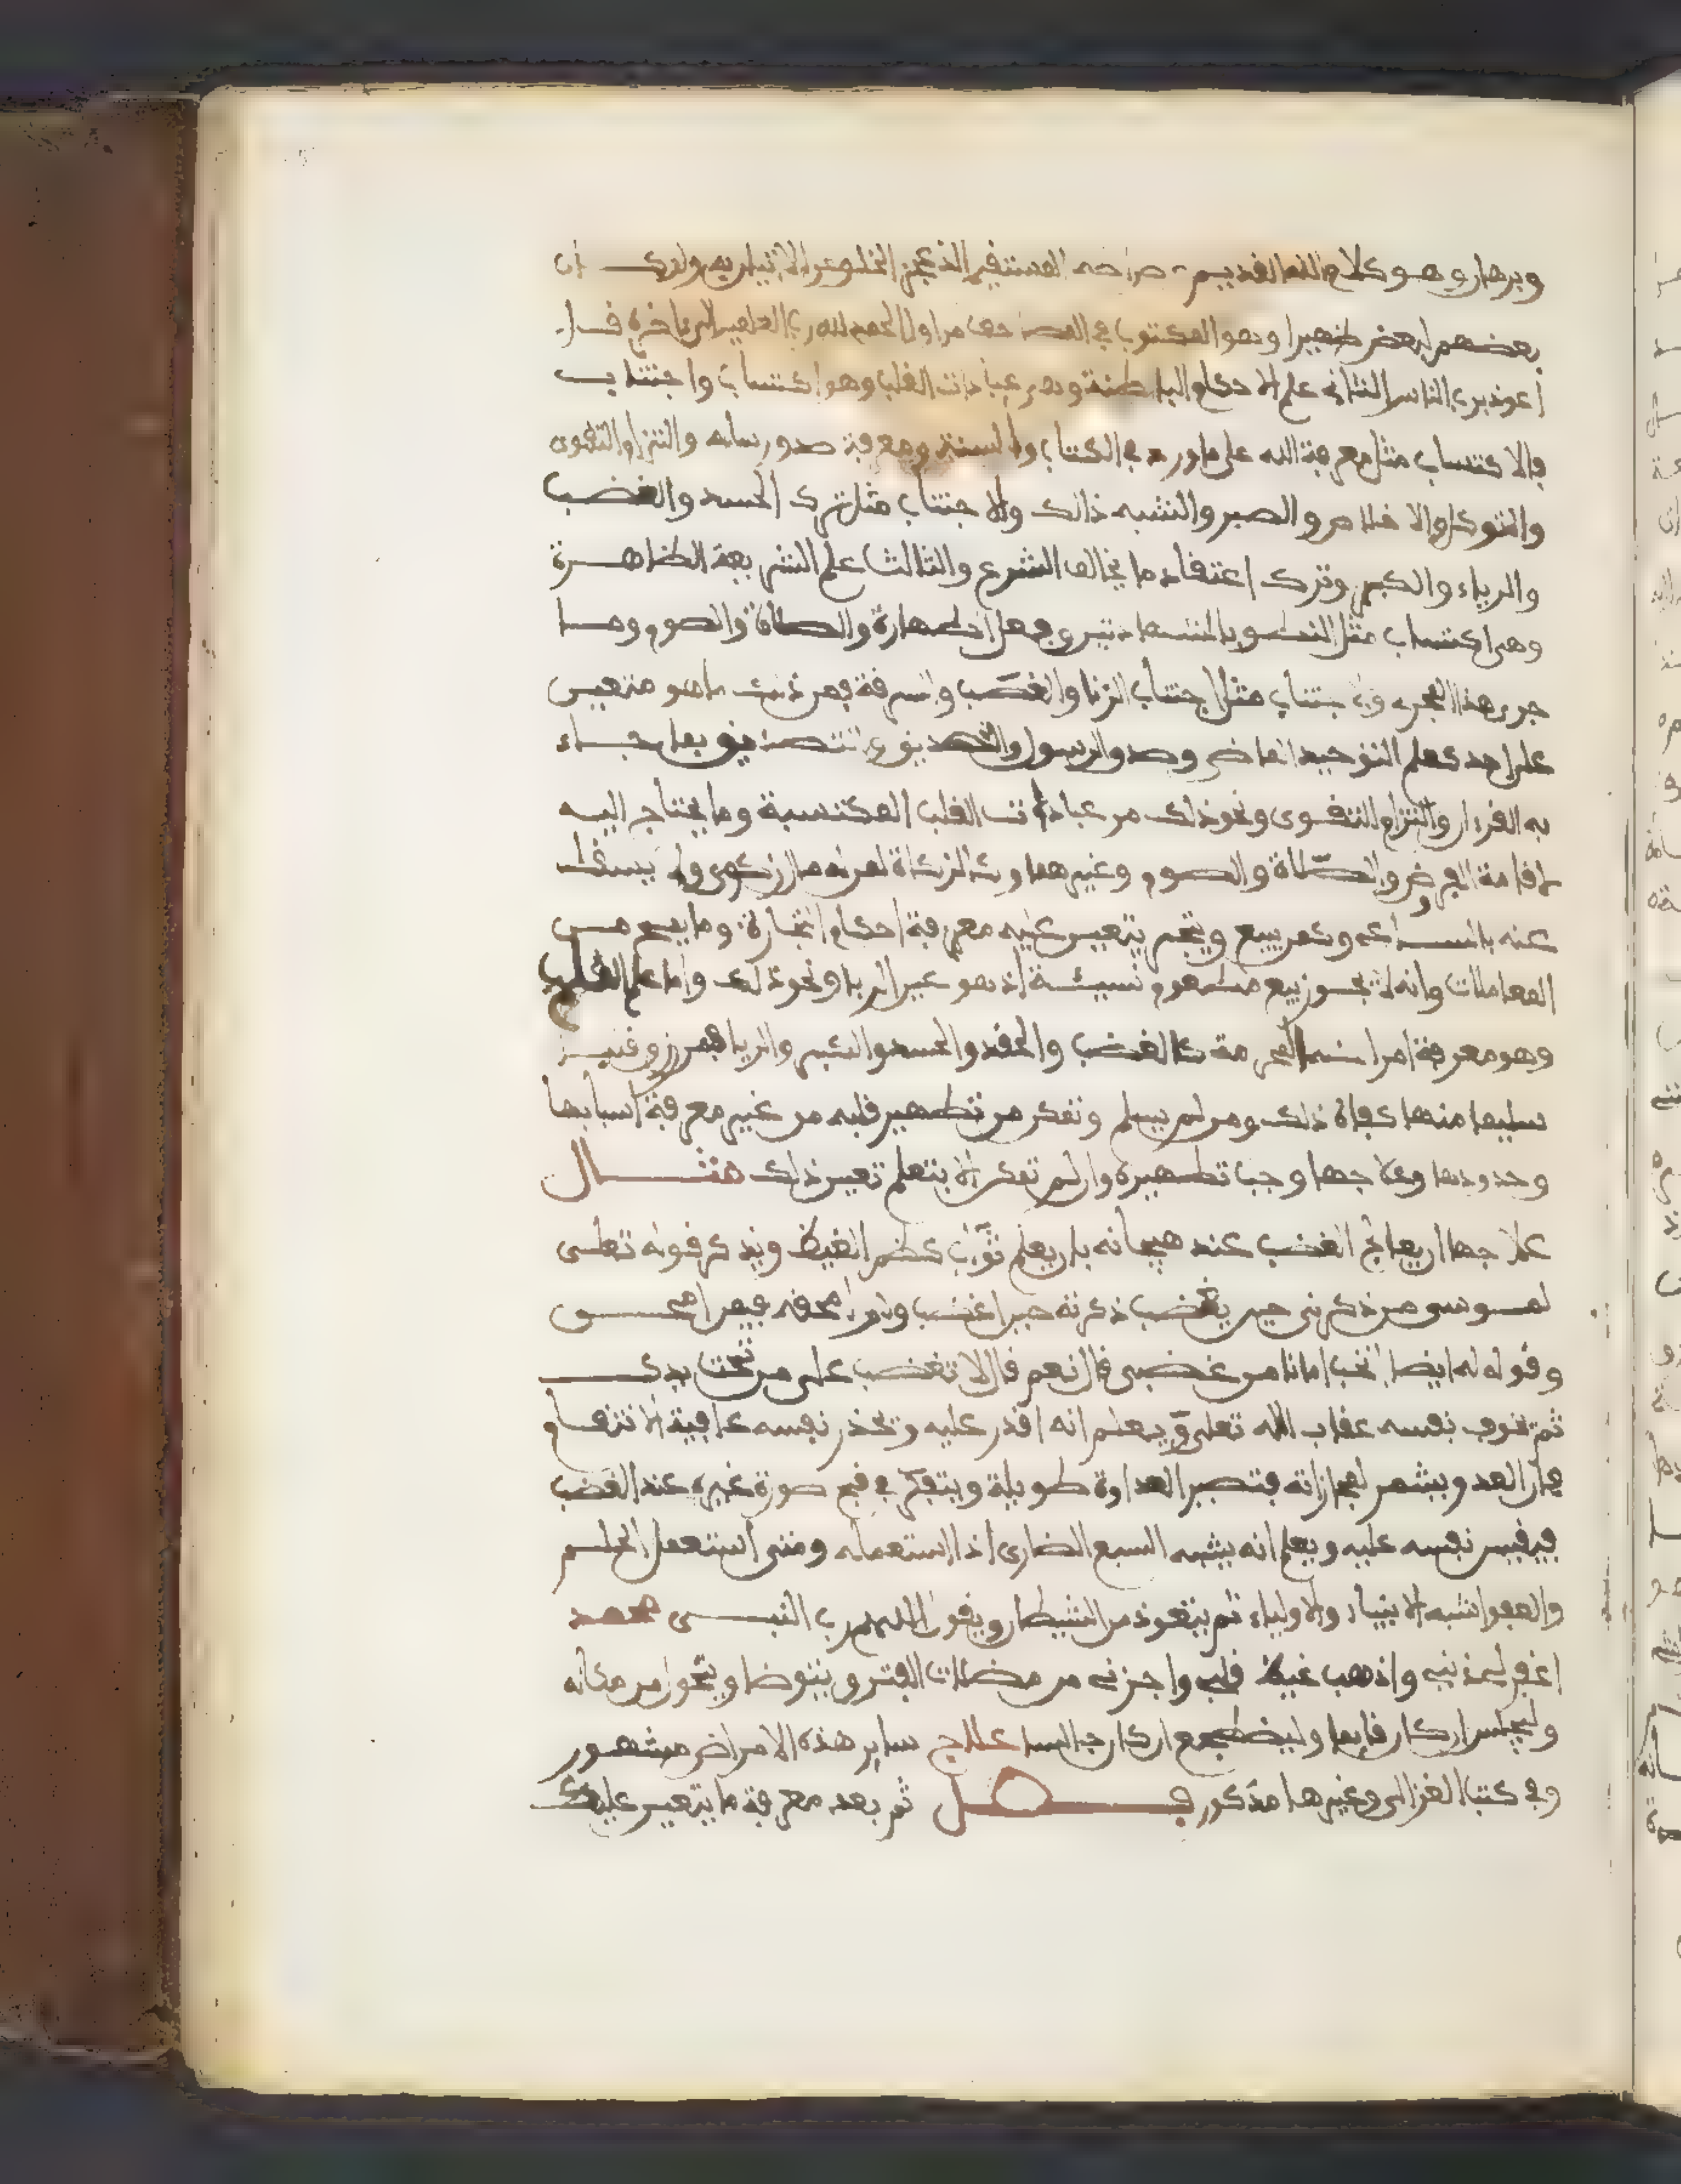 وبرهان وهو كلام الله القديم صراطه المستقيم الذي عجز الخلق عن الاتيان به ولو كان
بعضهم لبعض ظهيرا وهو المكتوب في المصاحف من اول الحمد لله رب العلمين الى اخره قل
اعوذ برب الناس الثاني علم الاحكام الباطنة وهي عبادات القلب وهو اكتساب واجتناب
فالاكتساب مثل معرفة الله على ما ورد في الكتاب والسنة ومعرفة صدق رسله والتزام التقوى
والتوكل والاخلاص والصبر والتشبه ذالك والاجتناب مثل ترك الحسد والغضب
والرياء والكبر وترك اعتقاد ما يخالف الشرع والثالث علم الشريعة الظاهرة
وهي اكتساب مثل النطق بالشهادتين وفعل الطهارة والصلاة والصوم وما
جرى هذا المجرى واجتناب مثل اجتناب الزنا والغصب والسرقة فمن ذلك ما هو متعين
على احد كعلم التوحيد الماضي وصدق الرسول والتصديق بما جاء
به القرءان والتزام التقوى ونحو ذلك من عبادات القلب المكتسبة وما يحتاج اليه
لاقامة الفرض والصلاة والصوم وغيرهما وكالزكاة لمن له مال زكوي ولا يسقط
عنه بالساعي وكمن يبيع ويتجر يتعين عليه معرفة احكام التجارة وما يصح من
المعاملات وانه لا يجوز بيع مطعوم نسيئة اذ هو عين الربا ونحو ذلك واما علم القلوب
وهو معرفة امراضه المحرمة كالغضب والحقد والحسد والكبر والريا فمن رزق قلبا
سليما منها كفاه ذلك ومن لم يسلم وتمكن من تطهير قلبه من غير معرفة اسبابها
وحدودها وعلاجها وجب تطهيره وان لم تمكن الا بتعلم تعين ذلك مثال
علاجها ان يعالج الغضب عند هيجانه بان يعلم ثواب كظم الغيظ ويذكر قوله تعلى
لموسى من ذكرني حين يغضب ذكرته حين اغضب ولم امحقه فيمن امحق
وقوله له ايضا اتحب امانا من غضبي قال نعم قال لا تغضب على من تحت يدك
ثم تخوف نفسه عقاب الله تعلى ويعلم انه اقدر عليه وتحذر نفسه عاقبة الانتقام
فان العدو يشمر لمجازاته فتصير العداوة طويلة ويتفكر في قبح صورة غيره عند الغضب
فيقيس نفسه عليه ويعلم انه يشبه السبع الضاري اذا استعمله ومتى استعمل الحلم
والعفو اشبه الانبياء والاولياء ثم يتعوذ من الشيطان ويقول اللهم رب النبي محمد
اغفر لي ذنبي واذهب غيظ قلبي واجرني من مضلات الفتن ويتوضا ويتحول من مكانه
وليجلس ان كان قايما وليضطجع ان كان جالسا علاج ساير هذه الامراض مشهور
وفي كتب الغزالي وغيرها مذكور فصل ثم بعد معرفة ما يتعين عليك